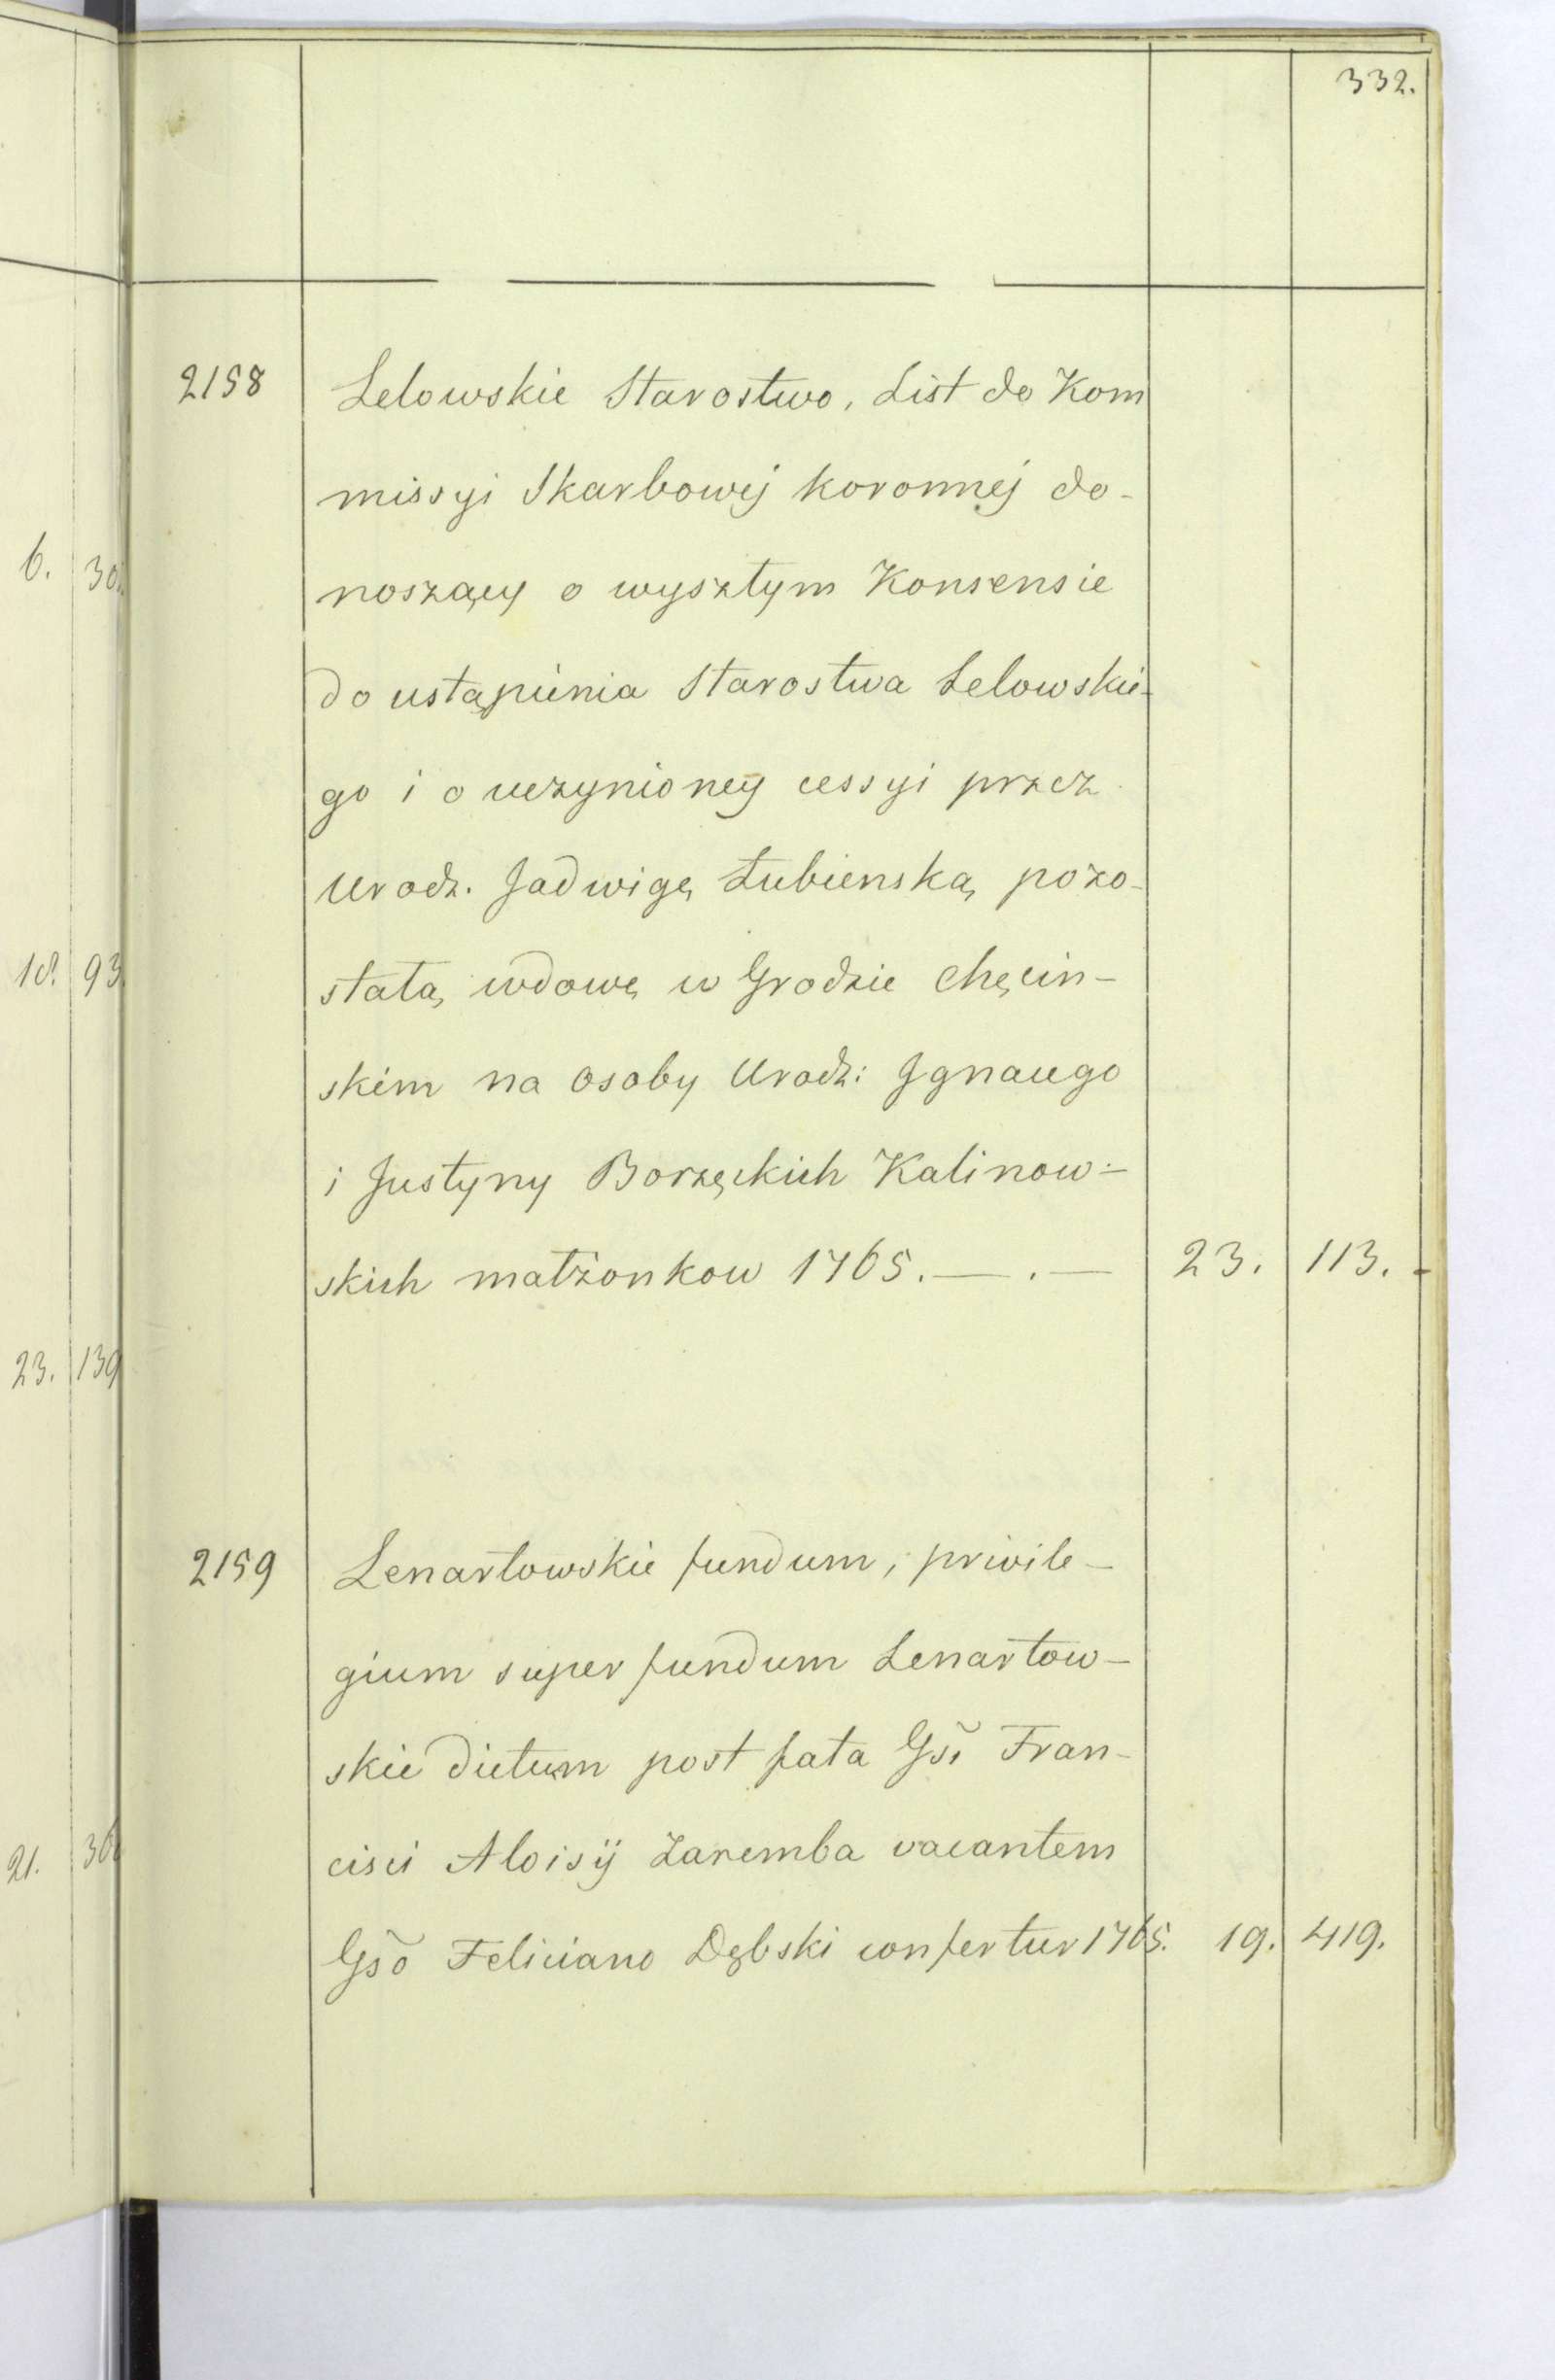 332.
2158 Lelowskie Starostwo, List do Kom
missyi Skarbowéj koronnéj do-
noszący o wyszłym Konsensie
do ustąpienia Starostwa Lelowskie-
go i o uczynioney cessyi przez
Urodz. Jadwigę Łubienską, pozo-
stałą wdowę w Grodzie Chęcin-
skim na osoby Urodz: Ignacego
i Justyny Borzęckich Kalinow-
skich małżonkow 1765. — . — 23. 113.
2159 Lenartowskie fundum, privile-
gium super fundum Lenartow-
skie dictum post fata Gsi Fran-
cisci Aloisÿ Zaremba vacantem
Gso Feliciano Dębski confertur 1765. 19. 419.
6. 30.
18. 93
23. 139
21.